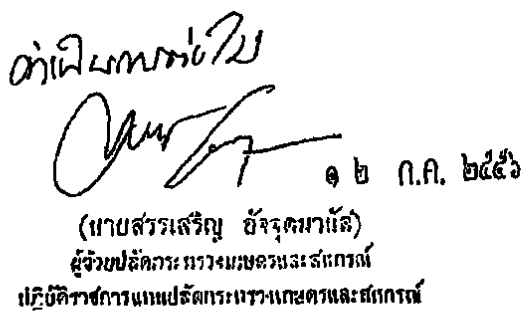 ดำเนินการต่อไป
๑๒ ก.ค. ๒๕๕๖
(นายสรรเสริญ อัจจุตมานัส)
ผู้ช่วยปลัดกระทรวงเกษตรและสหกรณ์
ปฏิบัติราชการแทนปลัดกระทรวงเกษตรและสหกรณ์